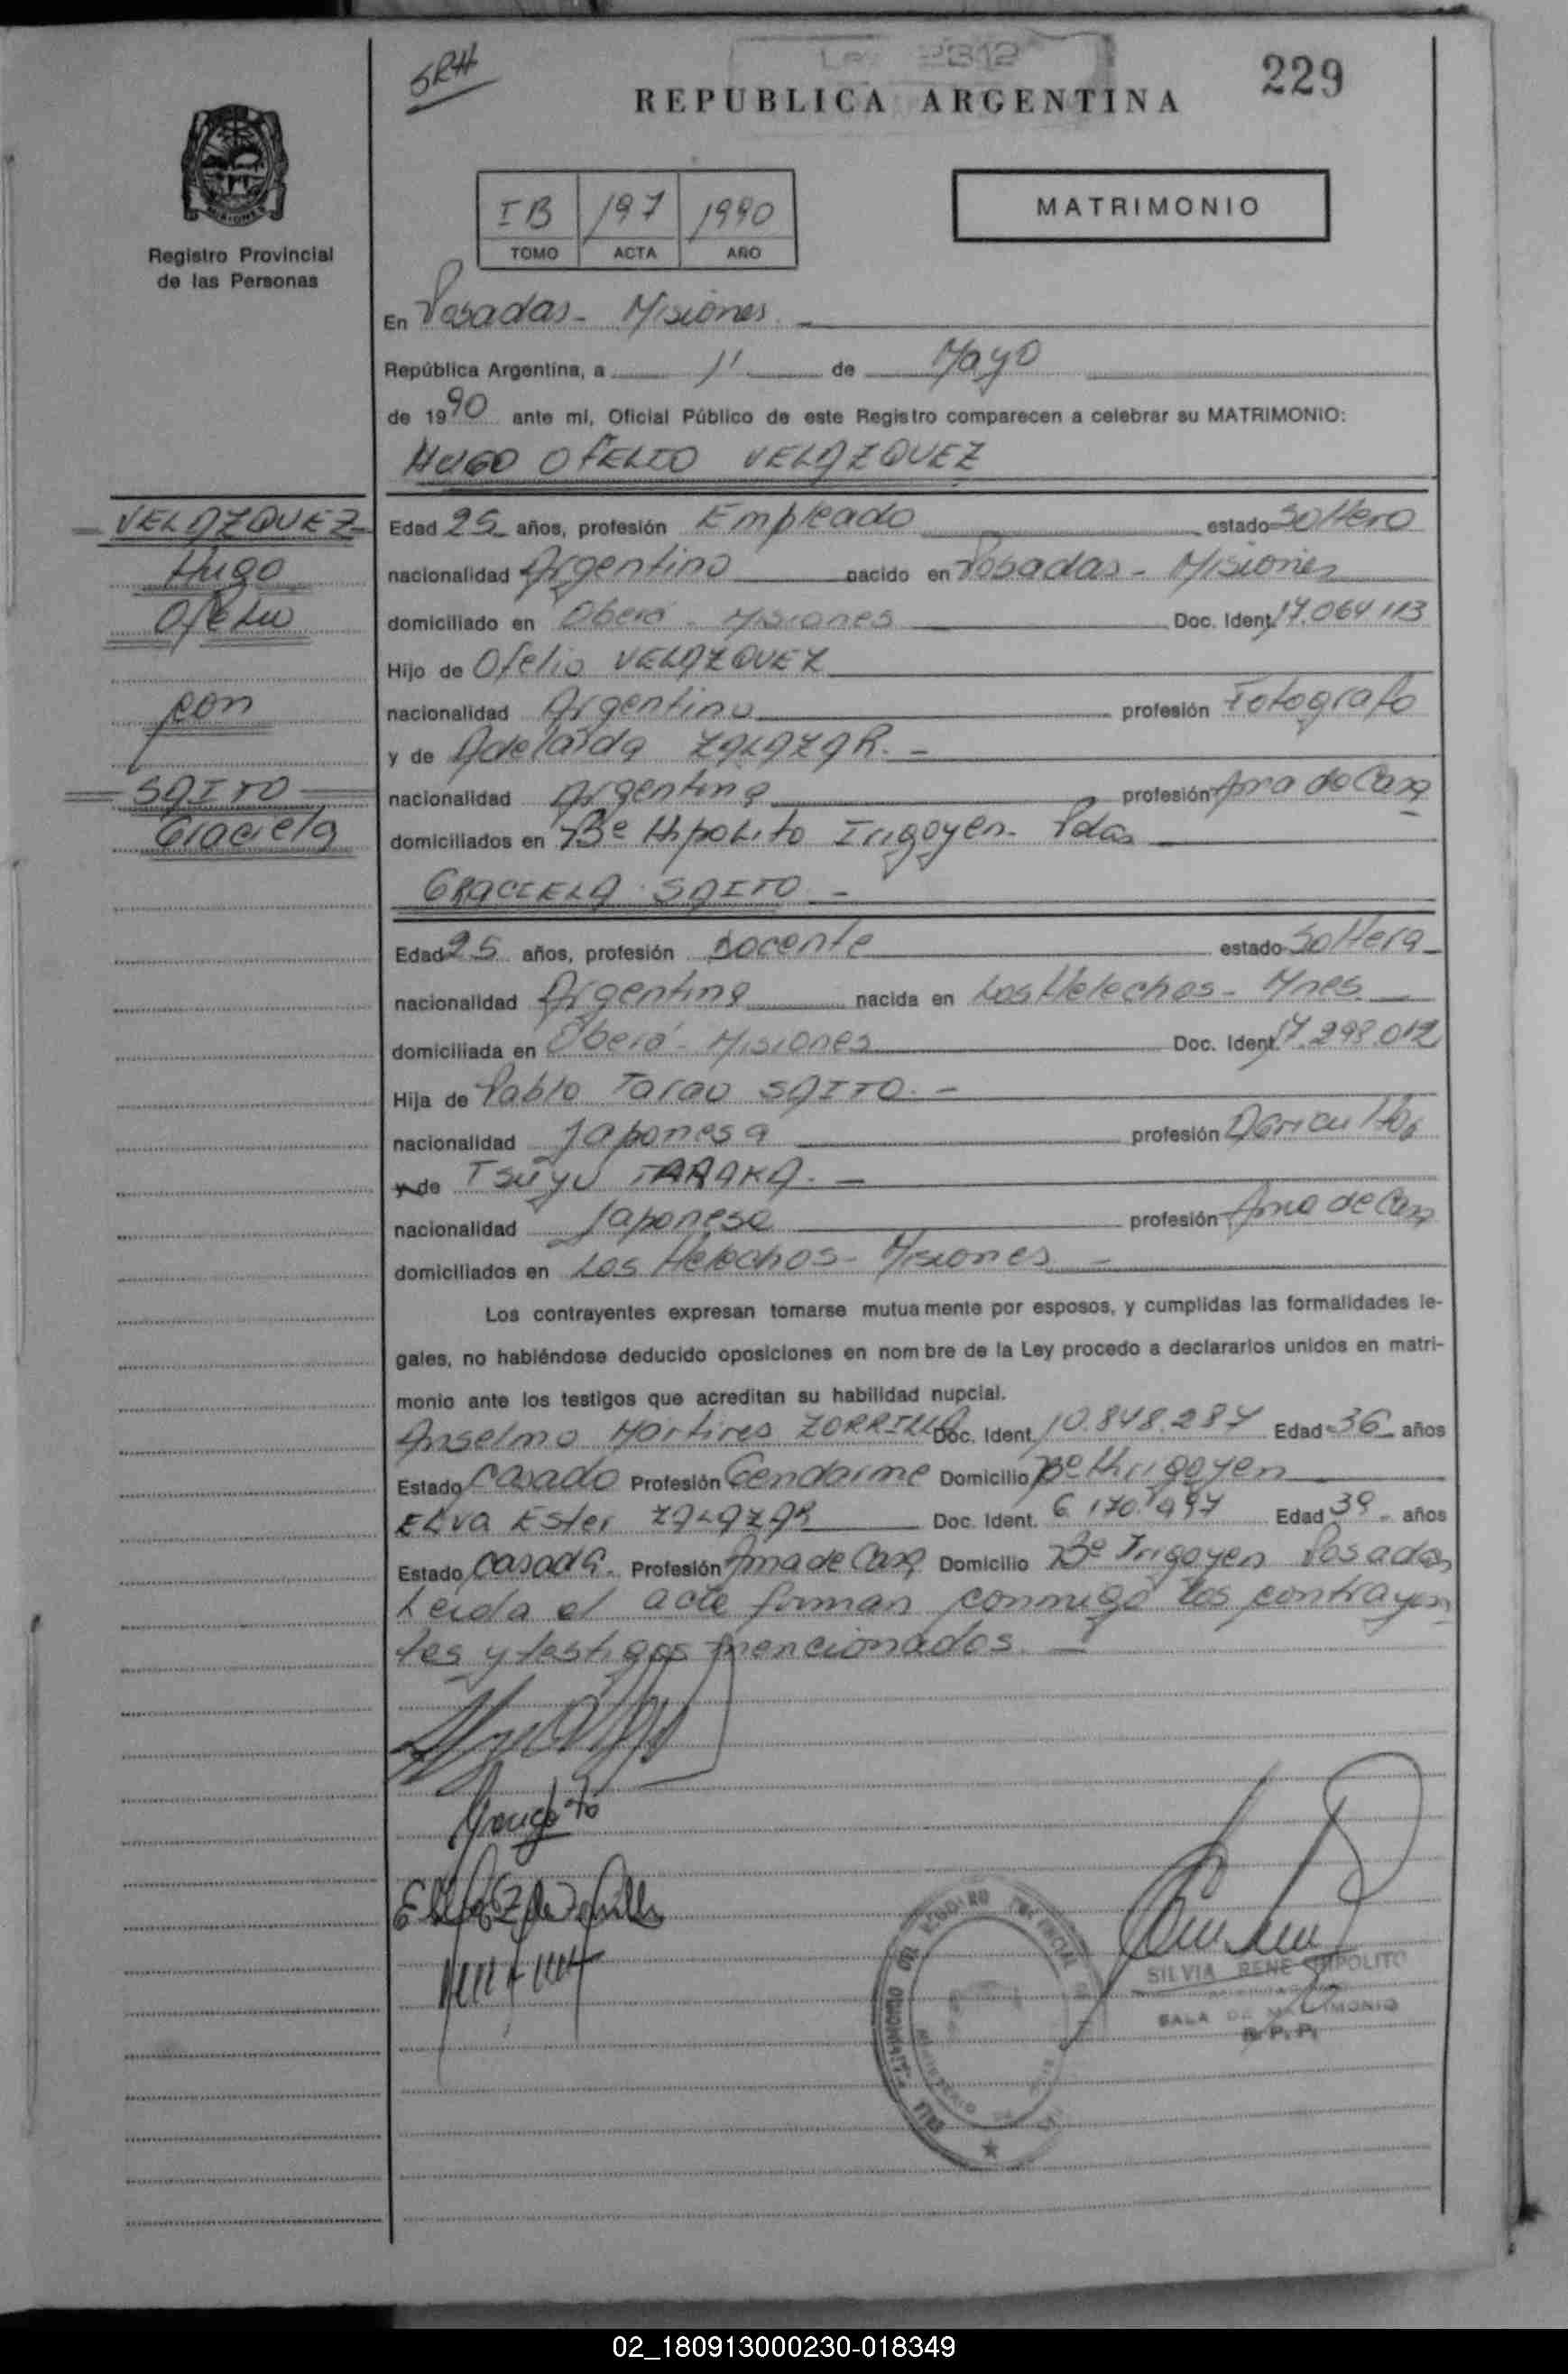 SRH
Ley 2312
229
REPUBLICA ARGENTINA
MISIONES
Registro Provincial
de las Personas
IB 197 1990
TOMO ACTA AÑO
MATRIMONIO
En Posadas - Misiones
República Argentina, a 11 de Mayo
de 1990 ante mi, Oficial Público de este Registro comparecen a celebrar su MATRIMONIO:
HUGO OFELIO VELAZQUEZ
VELAZQUEZ
Hugo
Ofelio
con
SAITO
Graciela
Edad 25 años, profesión Empleado estado Soltero
nacionalidad Argentino nacido en Posadas - Misiones
domiciliado en Oberá - Misiones Doc. Ident. 17.064.113
Hijo de Ofelio VELAZQUEZ
nacionalidad Argentino profesión Fotografo
y de Adelaida ZALAZAR. -
nacionalidad Argentina profesión Ama de Casa
domiciliados en Bº Hipolito Irigoyen - Pdas
GRACIELA SAITO -
Edad 25 años, profesión Docente estado Soltera
nacionalidad Argentina nacida en Los Helechos - Mnes.
domiciliada en Oberá - Misiones Doc. Ident. 17.298.012
Hija de Pablo Tarao SAITO. -
nacionalidad Japonesa profesión Agricultor
y de Tsuyu TANAKA. -
nacionalidad Japonesa profesión Ama de Casa
domiciliados en Los Helechos - Misiones -
Los contrayentes expresan tomarse mutuamente por esposos, y cumplidas las formalidades le-
gales, no habiéndose deducido oposiciones en nombre de la Ley procedo a declararlos unidos en matri-
monio ante los testigos que acreditan su habilidad nupcial.
Anselmo Mártires ZORRILLA Doc. Ident. 10.848.287 Edad 36 años
Estado Casado Profesión Gendarme Domicilio Bº H Irigoyen
Elva Ester ZALAZAR Doc. Ident. 6.170.997 Edad 39 años
Estado Casada. Profesión Ama de Casa Domicilio Bº Irigoyen Posadas
Leida el acta firman conmigo los contrayen
tes y testigos mencionados. -
SILVIA RENE HIPOLITO
SALA DE MATRIMONIO
R. P. P.
02_180913000230-018349